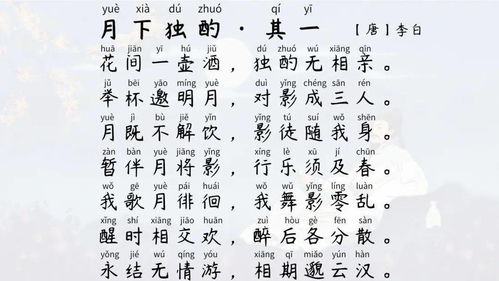 yuè xià dú zhuó qí yī
月下独酌·其一 【唐】李白
huā jiān yī hú jiǔ dú zhuó wú xiāng qīn
花间一壶酒，独酌无相亲。
jǔ bēi yāo míng yuè duì yǐng chéng sān rén
举杯邀明月，对影成三人。
yuè jì bù jiě yǐn yǐng tú suí wǒ shēn
月既不解饮，影徒随我身。
zàn bàn yuè jiāng yǐng xíng lè xū jí chūn
暂伴月将影，行乐须及春。
wǒ gē yuè pái huái wǒ wǔ yǐng líng luàn
我歌月徘徊，我舞影零乱。
xǐng shí xiāng jiāo huān zuì hòu gè fēn sàn
醒时相交欢，醉后各分散。
yǒng jié wú qíng yóu xiāng qī miǎo yún hàn
永结无情游，相期邈云汉。